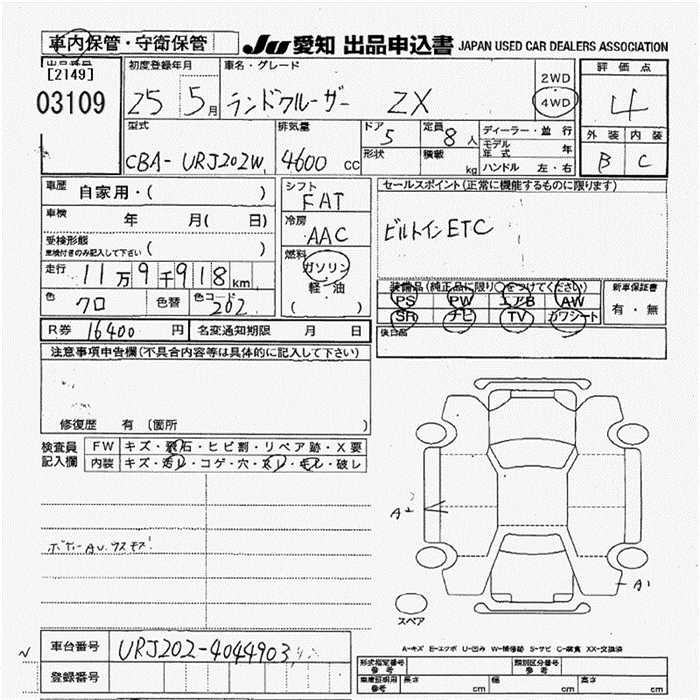 車内保管・守衛保管 JU 愛知 出品申込書 JAPAN USED CAR DEALERS ASSOCIATION
出品番号
[2149]
03109
初度登録年月
25 5月
車名・グレード
ランドクルーザー ZX
2WD
4WD
評価点
4
外装 内装
B C
型式
CBA-URJ202W
排気量
4600 cc
ドア 5
形状
定員 8人
積載 kg
ディーラー・並行
モデル年式 年
ハンドル 左・右
車歴 自家用・( )
車検 年 月( 日)
受検形態
車検付きのみ記入して下さい ( )
走行 11万9千918km
色 クロ 色替 色コード 202
シフト
FAT
冷房
AAC
燃料
ガソリン
軽・油
( )
セールスポイント(正常に機能するものに限ります)
ビルトインETC
装備品(純正品に限り○をつけてください)
PS PW エアB AW
SR ナビ TV カワシート
新車保証書
有・無
後日品
R券 16400円 名変通知期限 月 日
注意事項申告欄(不具合内容等は具体的に記入して下さい)
修復歴 有 (箇所 )
検査員記入欄
FW キズ・飛石・ヒビ割・リペア跡・X要
内装 キズ・汚レ・コゲ・穴・スレ・キレ・破レ
A2
A1
スペア
A=キズ E=エクボ U=凹み W=補修跡 S=サビ C=腐食 XX=交換済
車台番号 URJ202-4044903
登録番号
形式指定番号
参考
類別区分番号
参考
車庫証明用
参考
長さ cm 幅 cm 高さ cm